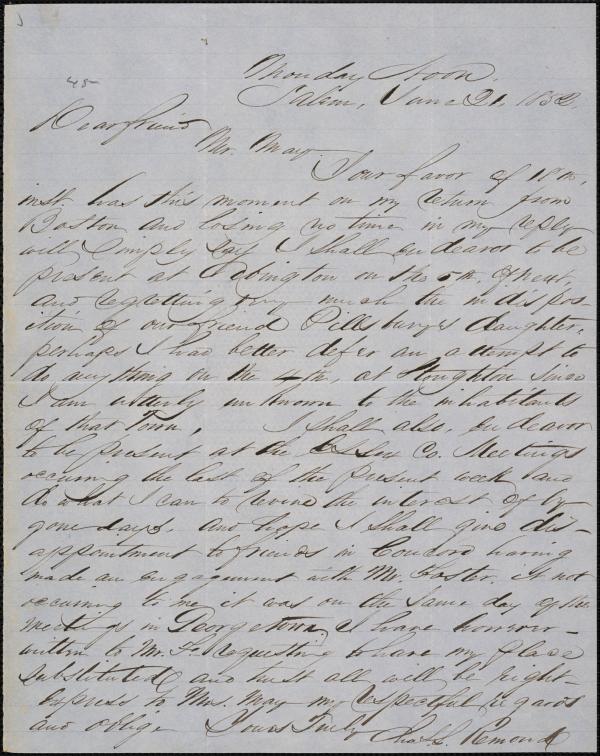 45
Monday Noon.
Salem, June 21, 1852.
Dear friend
Mr. May.
Your favor of 18th,
inst. has this moment on my return from
Boston and losing no time in my reply
will simply say I shall endeavor to be
present at Abington on the 5th, of next,
and regretting very much the indispos-
ition of our friend Pillsburys daughter,
perhaps I had better defer an attempt to
do anything on the 4th, at Stoughton since
I am utterly unknown to the inhabitants
of that Town, I shall also, endeavor
to be present at the Essex Co. Meetings
occuring the last of the present week and
do what I can to revive the interest of by
gone days, and hope I shall give dis-
appointment to friends in Concord having
made an engagement with Mr. Foster. it not
occuring to me it was on the same day of the
meetings in Georgetown, I have however
written to Mr. F. requesting to have my place
substituted and trust all will be right-
express to Mrs. May my respectful regards
and oblige Yours Truly Chas. L. Remond